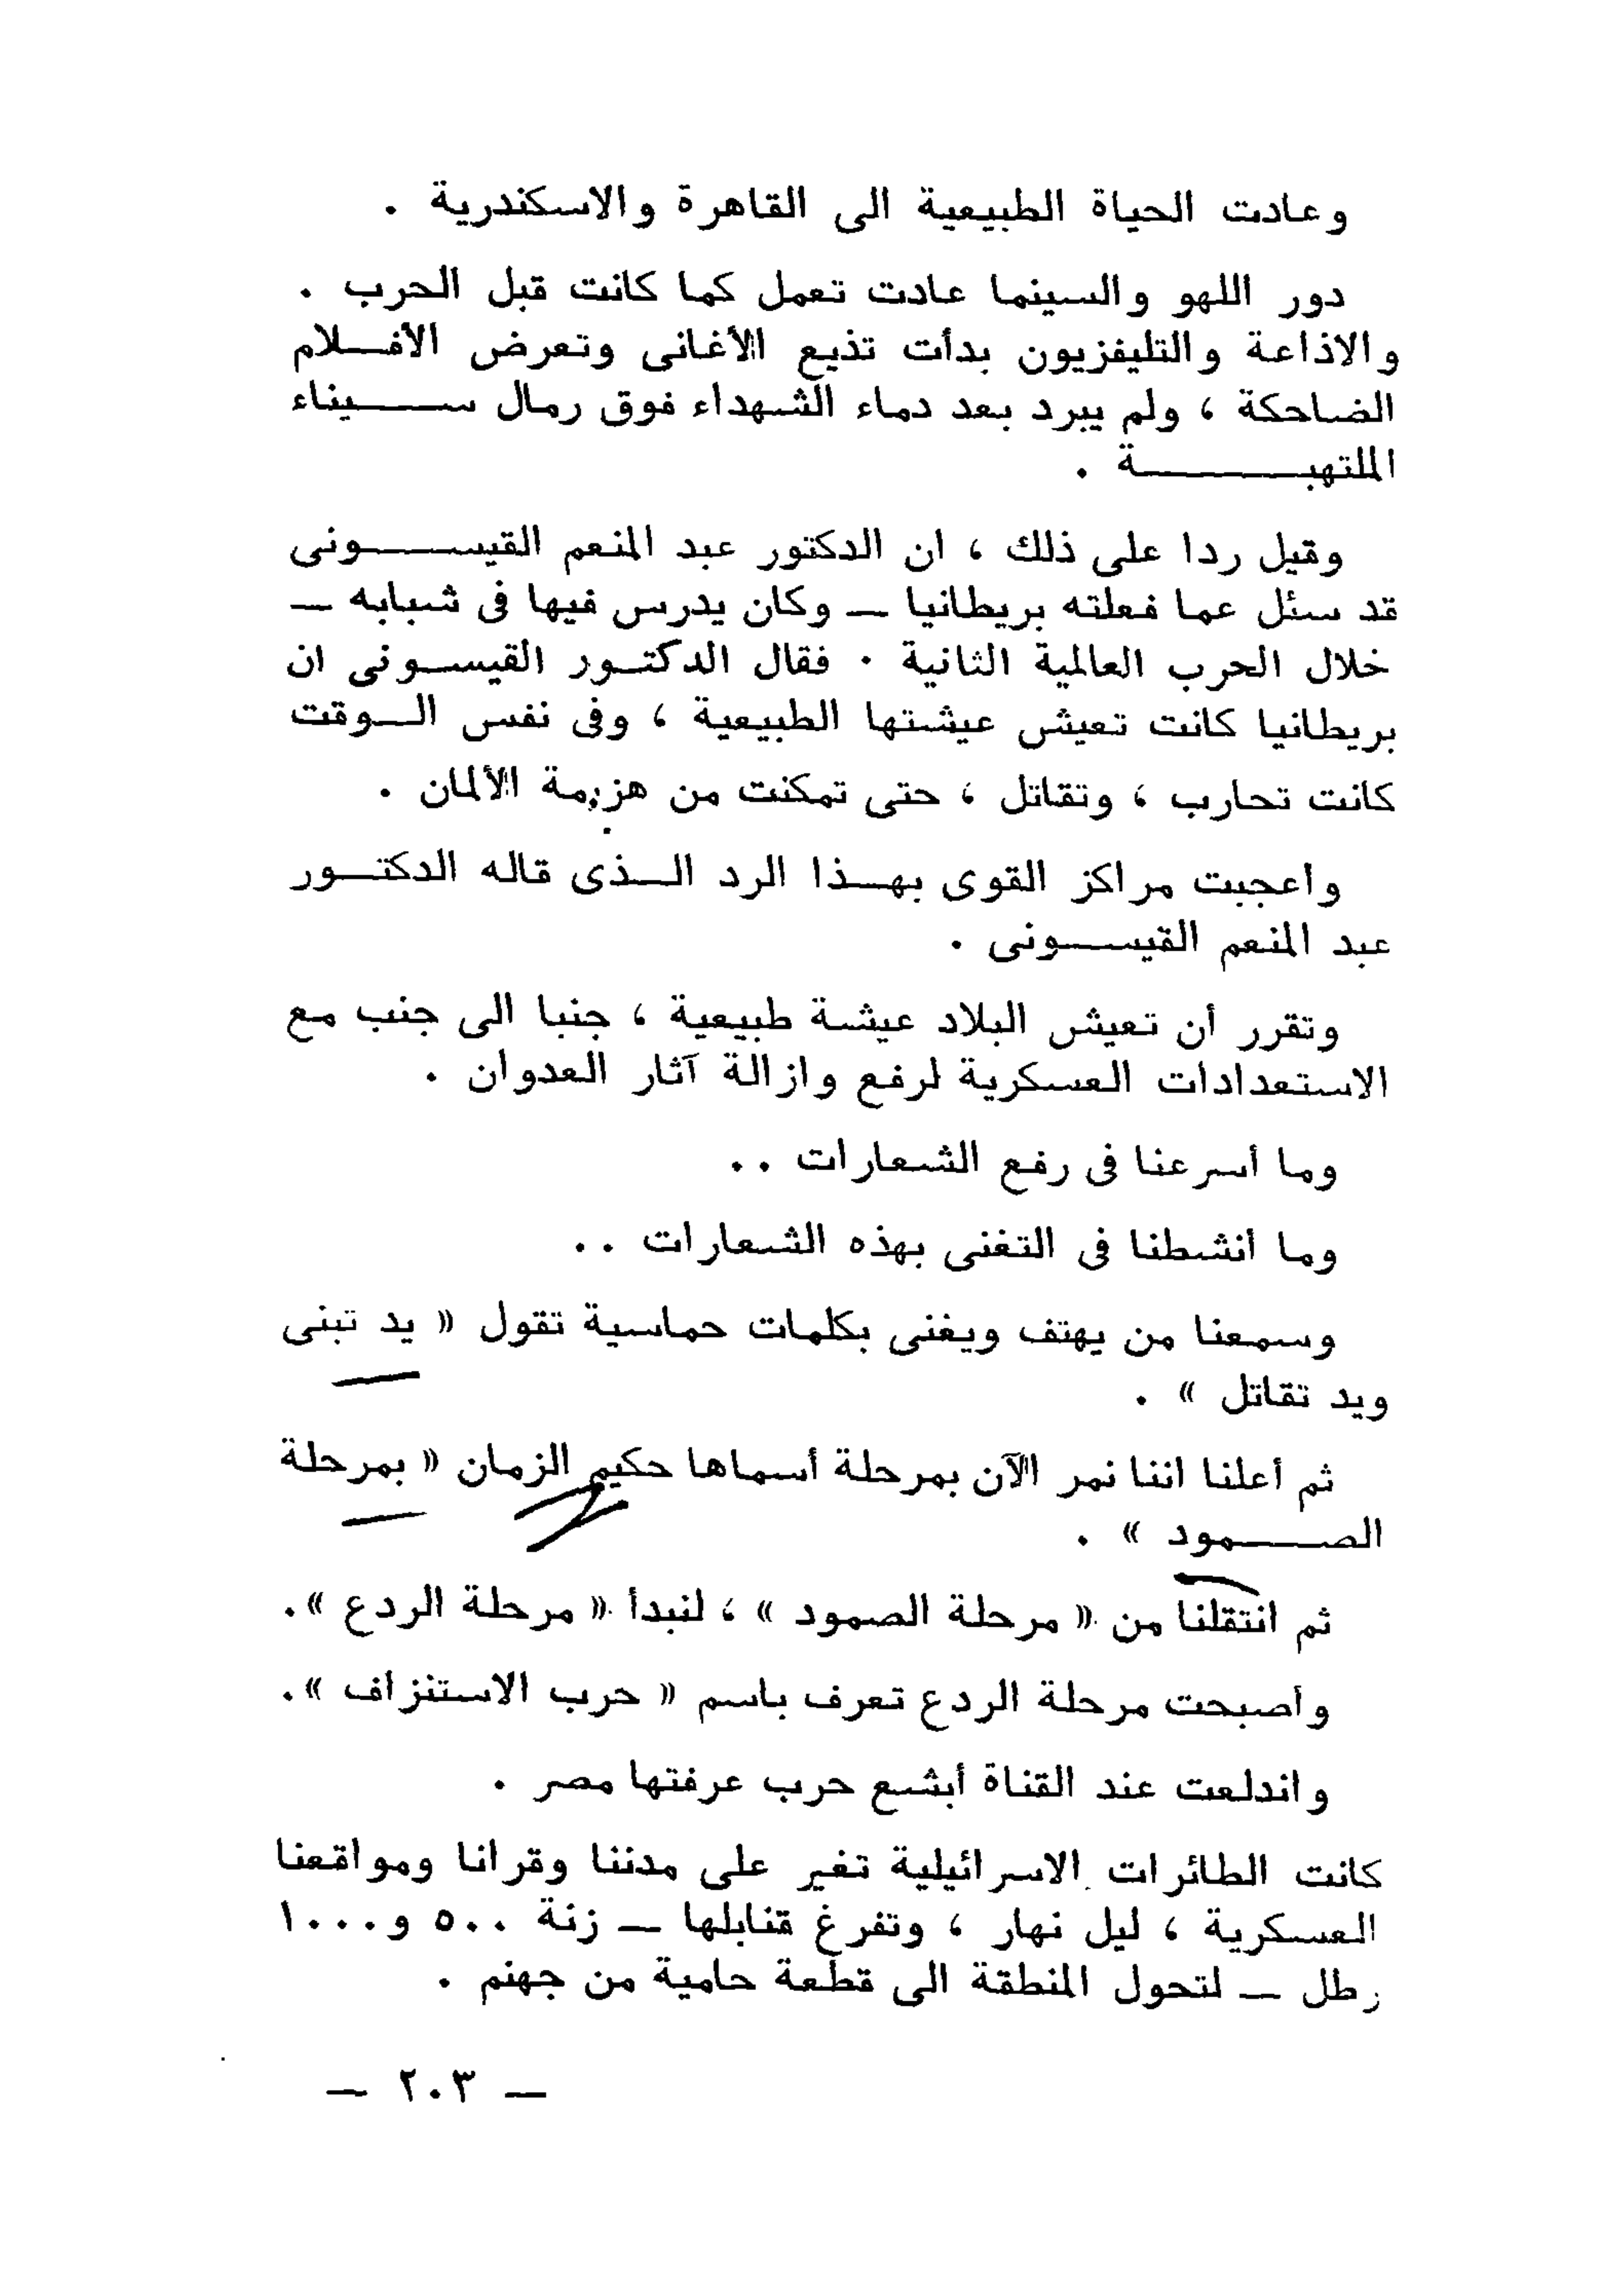 وعادت الحياة الطبيعية الى القاهرة والاسكندرية .
دور اللهو والسينما عادت تعمل كما كانت قبل الحرب .
والاذاعة والتليفزيون بدأت تذيع الأغانى وتعرض الأفـــلام
الضاحكة ، ولم يبرد بعد دماء الشهداء فوق رمال ســـــيناء
الملتهبـــــــــة .
وقيل ردا على ذلك ، ان الدكتور عبد المنعم القيســــونى
قد سئل عما فعلته بريطانيا ــ وكان يدرس فيها فى شبابه ــ
خلال الحرب العالمية الثانية . فقال الدكتــور القيســونى ان
بريطانيا كانت تعيش عيشتها الطبيعية ، وفى نفس الــوقت
كانت تحارب ، وتقاتل ، حتى تمكنت من هزيمة الألمان .
واعجبت مراكز القوى بهــذا الرد الــذى قاله الدكتــور
عبد المنعم القيســــونى .
وتقرر أن تعيش البلاد عيشة طبيعية ، جنبا الى جنب مع
الاستعدادات العسكرية لرفع وازالة آثار العدوان .
وما أسرعنا فى رفع الشعارات . .
وما أنشطنا فى التغنى بهذه الشعارات . .
وسمعنا من يهتف ويغنى بكلمات حماسية تقول « يد تبنى
ويد تقاتل » .
ثم أعلنا اننا نمر الآن بمرحلة أسماها حكيم الزمان « بمرحلة
الصــــــمود » .
ثم انتقلنا من « مرحلة الصمود » ، لنبدأ « مرحلة الردع ».
وأصبحت مرحلة الردع تعرف باسم « حرب الاستنزاف ».
واندلعت عند القناة أبشع حرب عرفتها مصر .
كانت الطائرات الاسرائيلية تغير على مدننا وقرانا ومواقعنا
العسكرية ، ليل نهار ، وتفرغ قنابلها ــ زنة ٥٠٠ و١٠٠٠
رطل ــ لتحول المنطقة الى قطعة حامية من جهنم .
ــ ٢٠٣ ــ